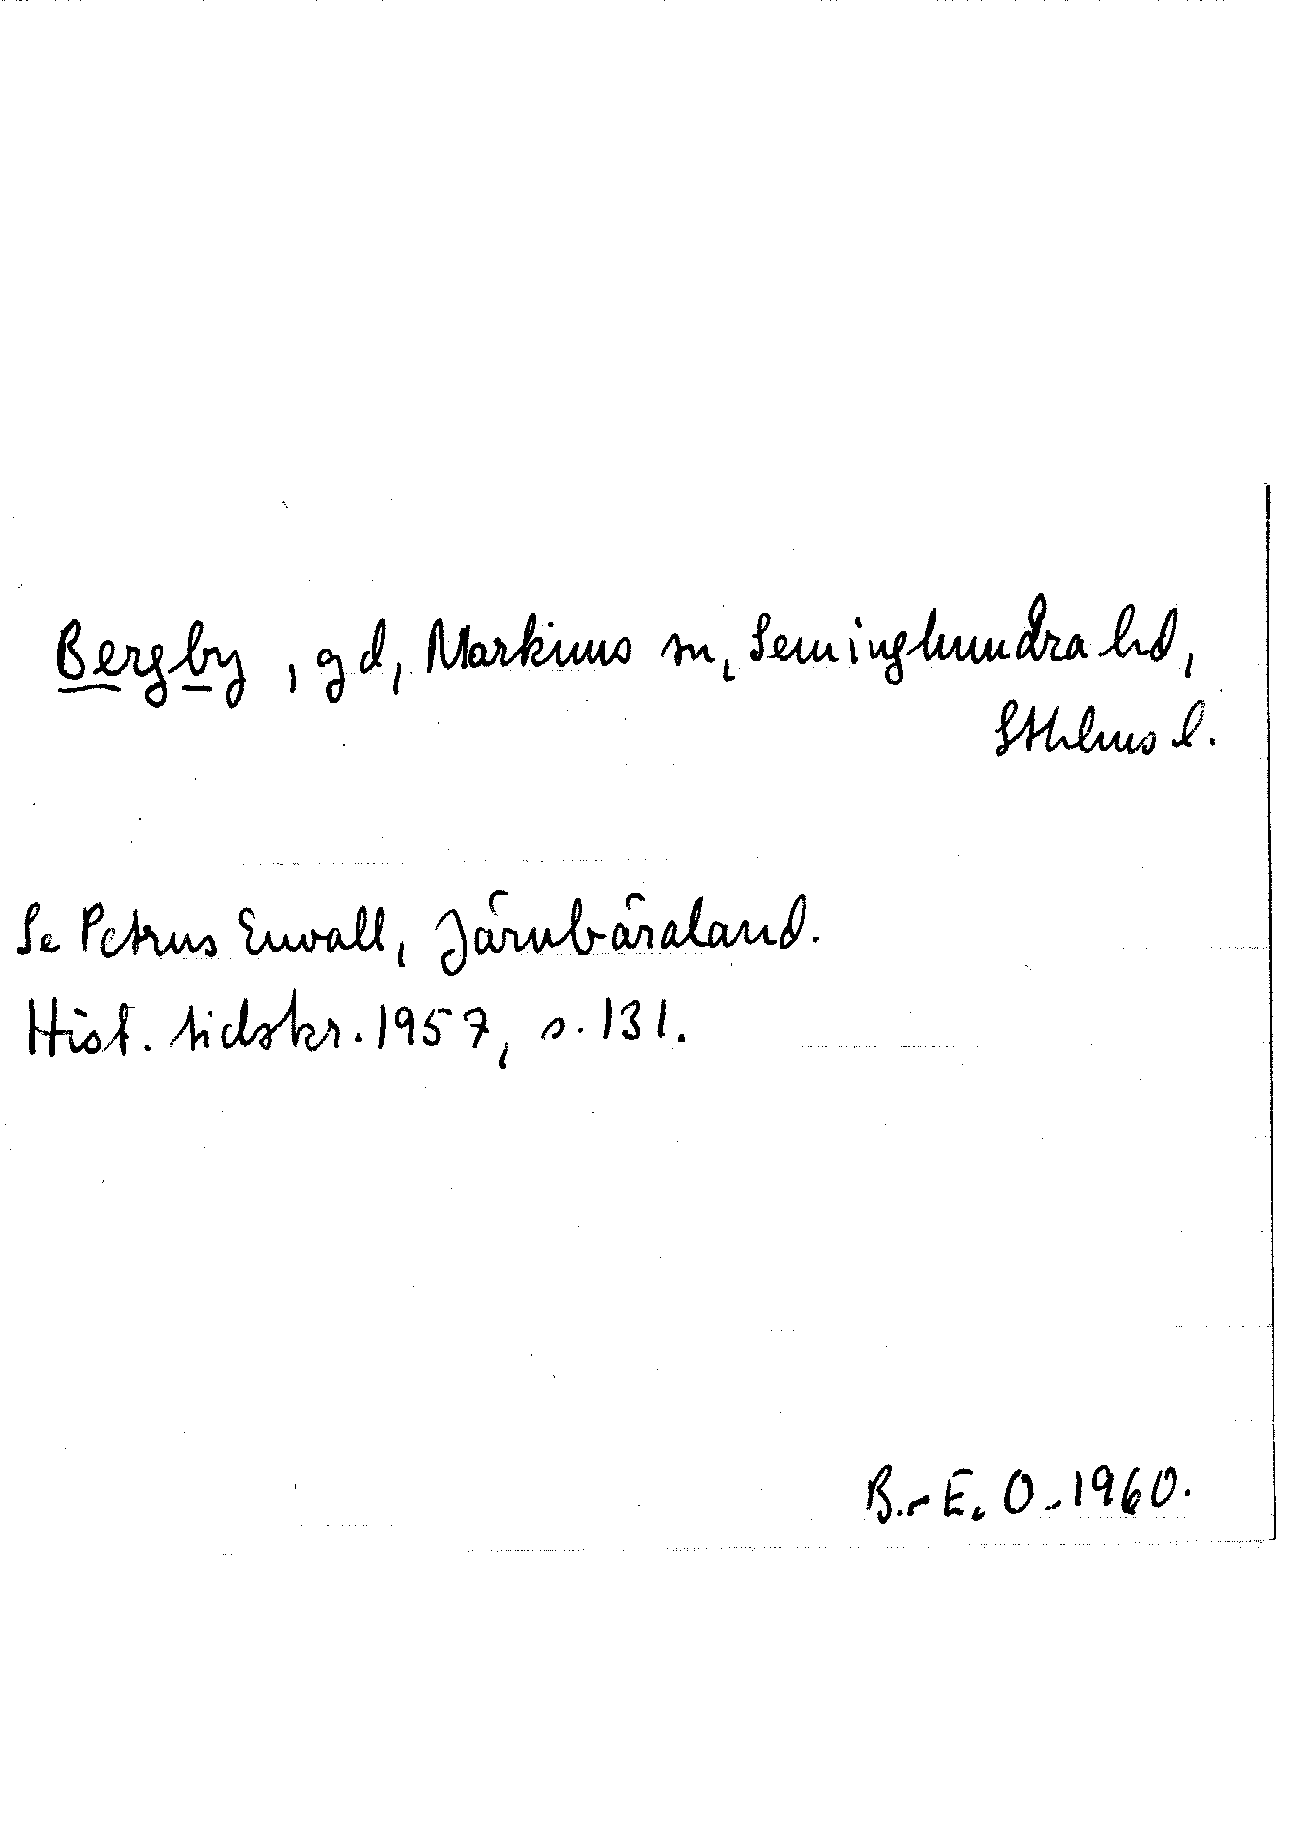 Bergby, gd, Markims sn, Seminghundra hd,
Sthlms l.
Se Petrus Envall, Järnbäraland.
Hist. tidskr. 1957, s. 131.
B.-E. O. 1960.